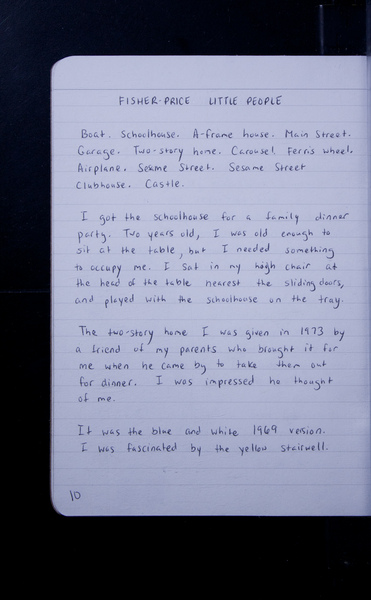 FISHER-PRICE LITTLE PEOPLE
Boat. Schoolhouse. A-frame house. Main Street.
Garage. Two-story home. Carousel. Ferris wheel.
Airplane. Sesame Street. Sesame Street
Clubhouse. Castle.
I got the schoolhouse for a family dinner
party. Two years old, I was old enough to
sit at the table, but I needed something
to occupy me. I sat in my high chair at
the head of the table nearest the sliding doors,
and played with the schoolhouse on the tray.
The two-story home I was given in 1973 by
a friend of my parents who brought it for
me when he came by to take them out
for dinner. I was impressed he thought
of me.
It was the blue and white 1969 version.
I was fascinated by the yellow stairwell.
10